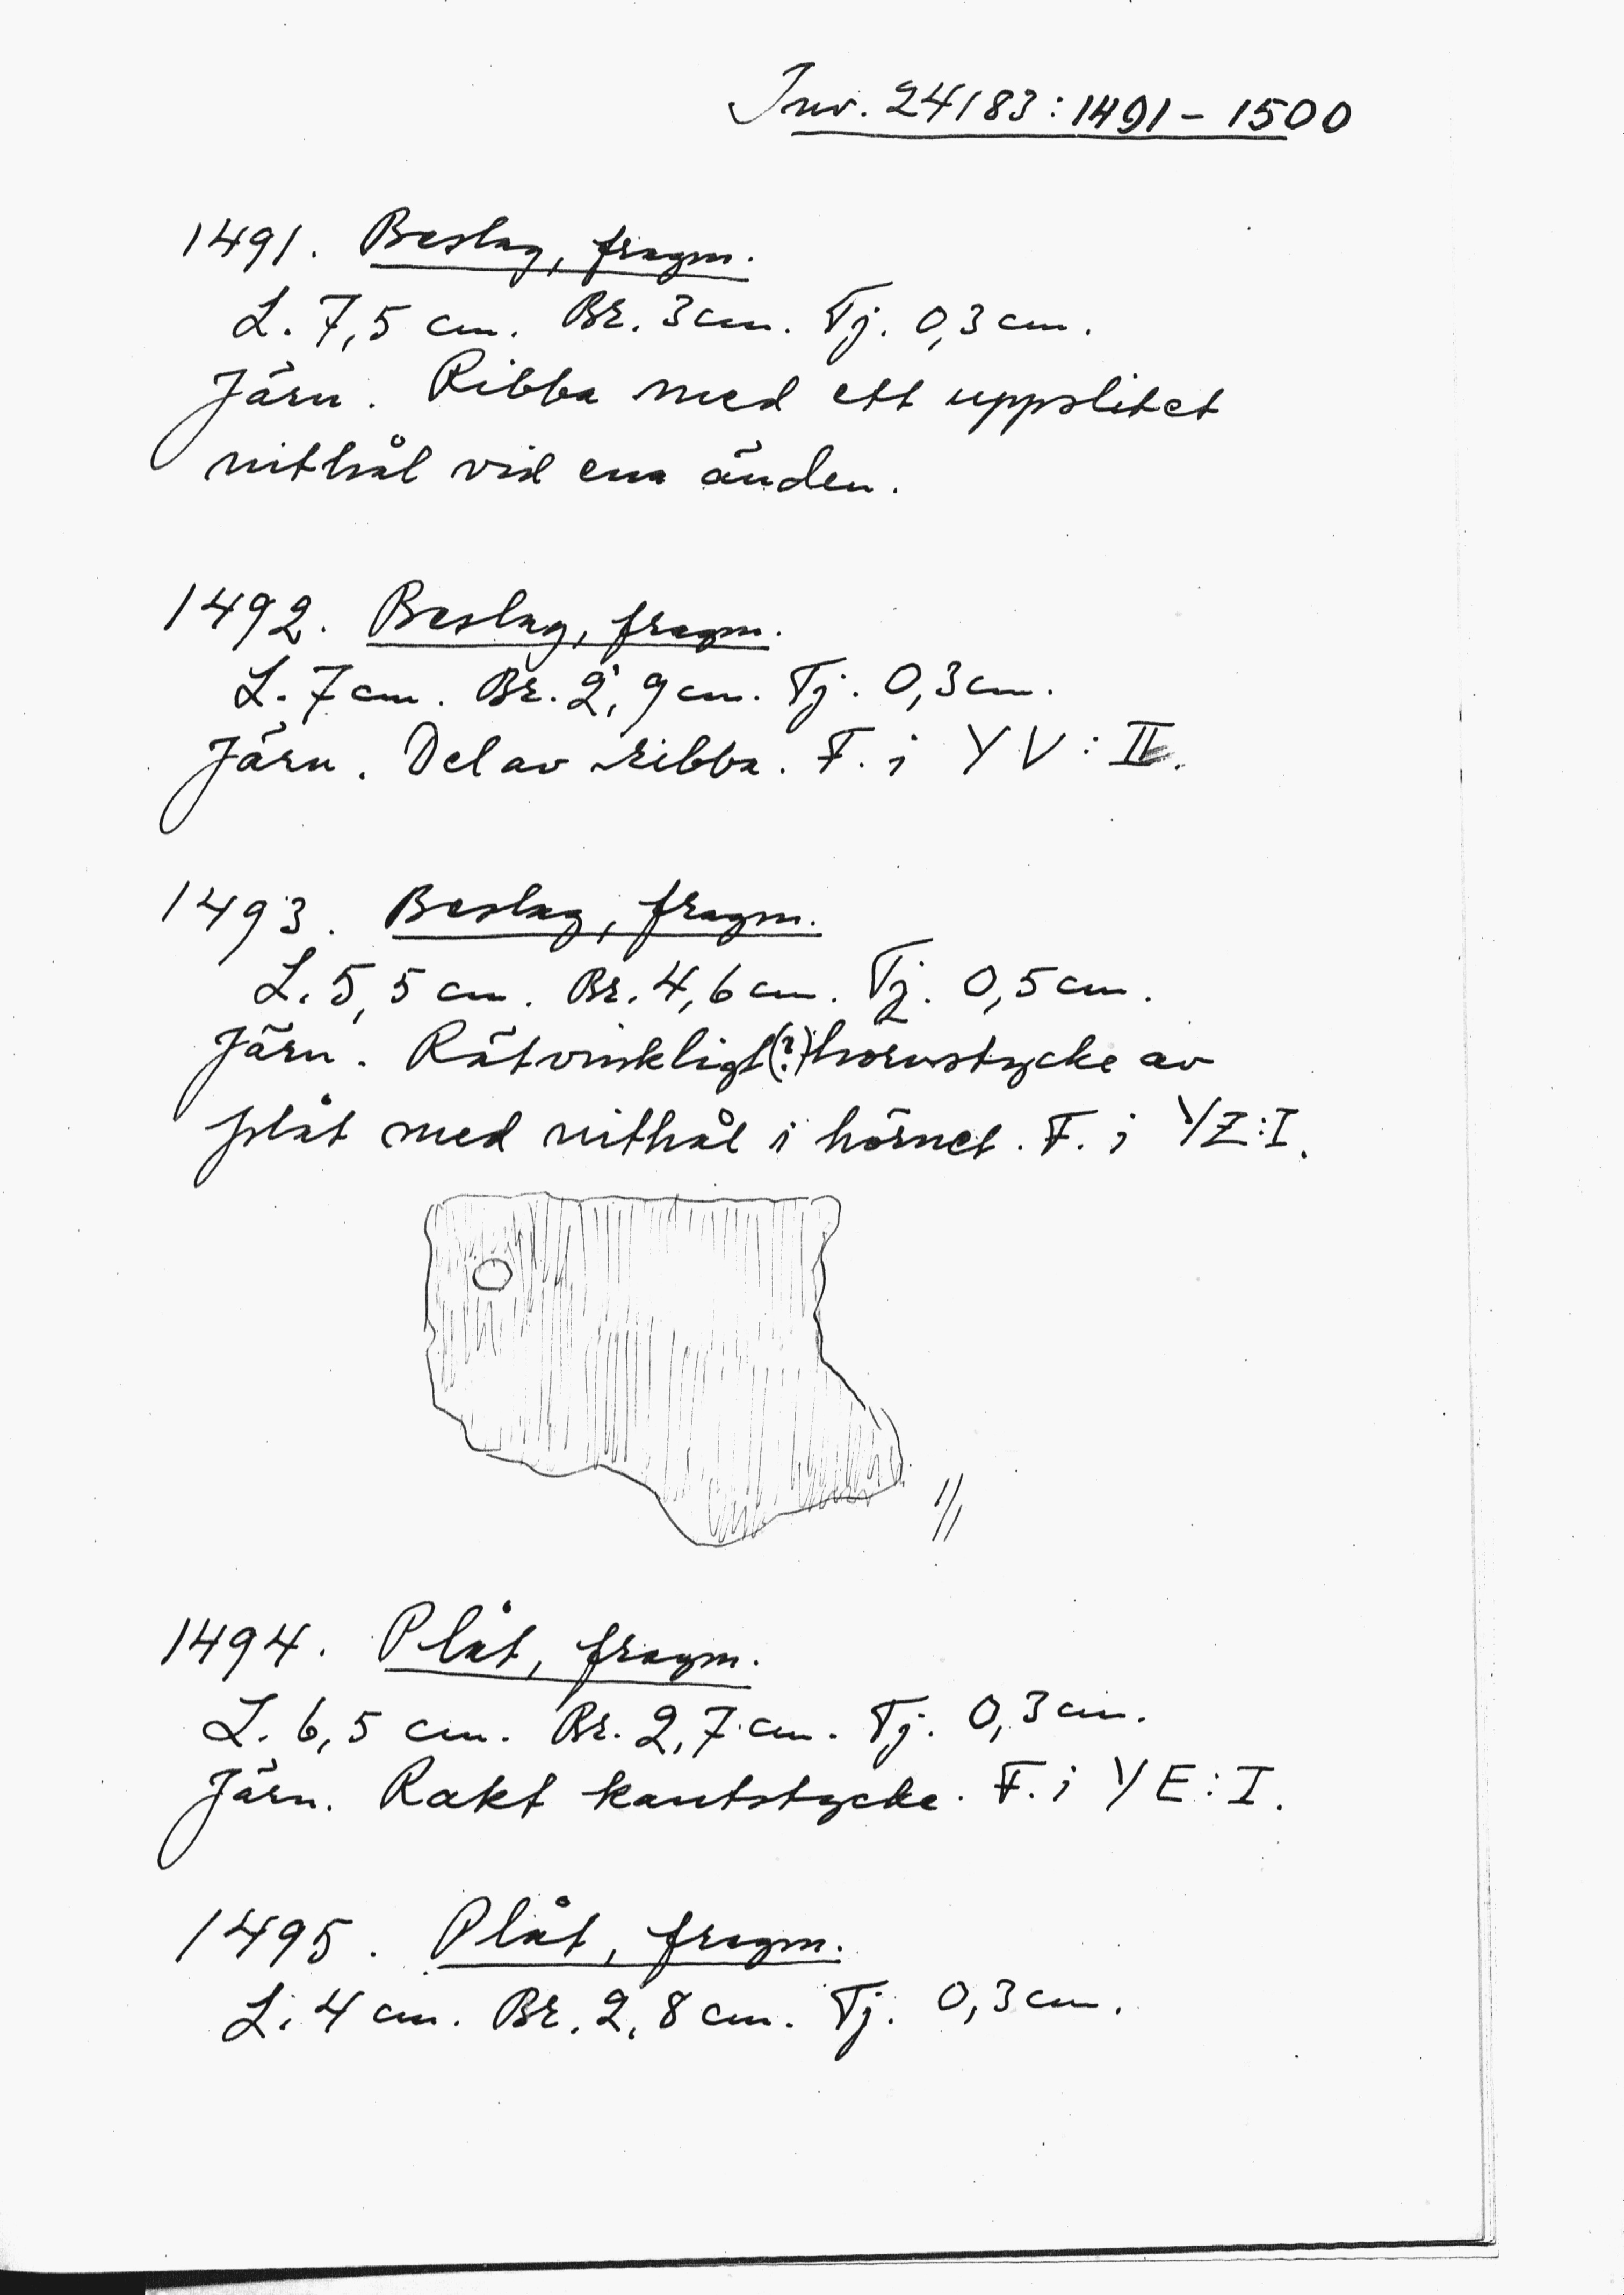 Inv. 24183:1491-1500
1491. Beslag, fragm.
L. 7,5 cm. Br. 3 cm. Tj. 0,3 cm.
Järn. Ribba med ett uppslitet
nithål vid ena änden.
1492. Beslag, fragm.
L. 7 cm. Br. 2,9 cm. Tj. 0,3 cm.
Järn. Del av ribba. F. i YV:II.
1493. Beslag, fragm.
L. 5,5 cm. Br. 4,6 cm. Tj. 0,5 cm.
Järn. Rätvinkligt(?) hörnstycke av
plåt med nithål i hörnet. F. i YZ:I.
1/1
1494. Plåt, fragm.
L. 6,5 cm. Br. 2,7 cm. Tj. 0,3 cm.
Järn. Rakt kantstycke. F. i YE:I.
1495. Plåt, fragm.
L. 4 cm. Br. 2,8 cm. Tj. 0,3 cm.